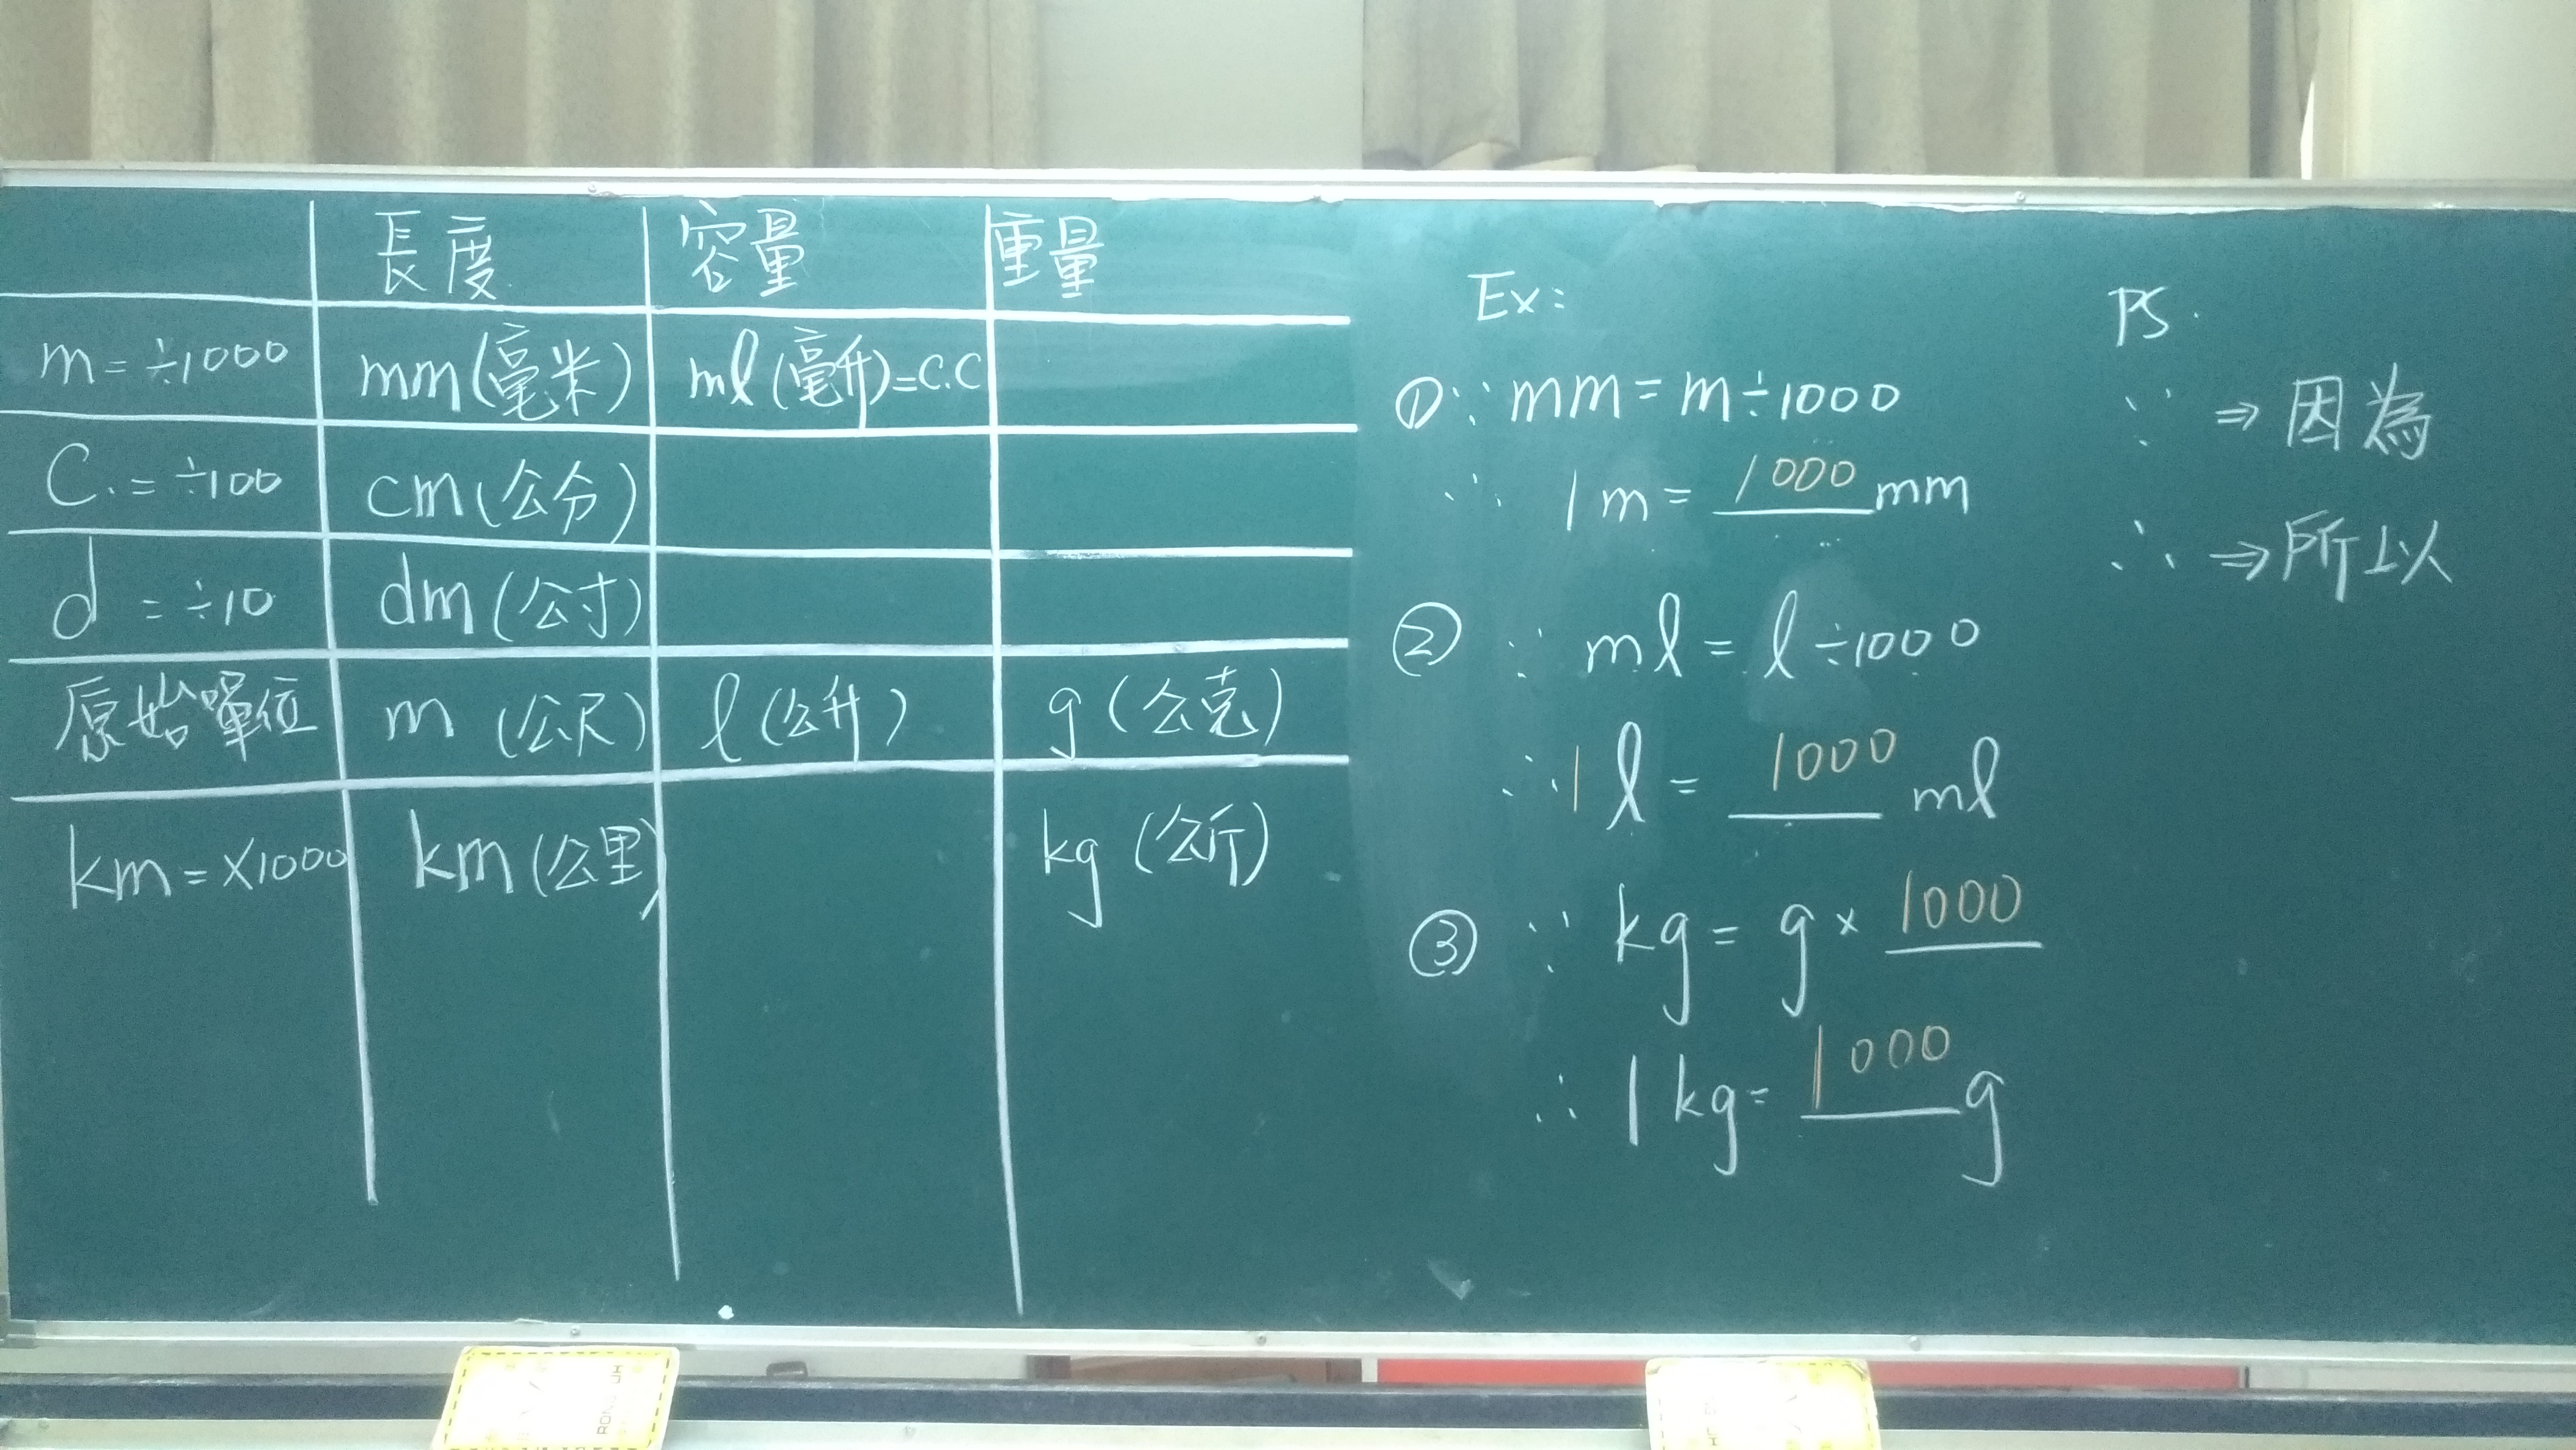 長度 容量 重量
m=÷1000 mm(毫米) ml(毫升)=C.C
C.=÷100 cm(公分)
d=÷10 dm(公寸)
原始單位 m(公尺) l(公升) g(公克)
km=×1000 km(公里) kg(公斤)
Ex:
①∵mm=m÷1000
∴ 1m=1000mm
②∵ml=l÷1000
∴1l=1000ml
③∵kg=g×1000
∴1kg=1000g
PS.
∵⇒因為
∴⇒所以